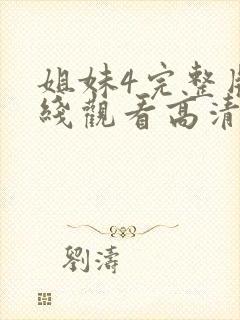 姐妹4完整
綫觀看高清
劉濤